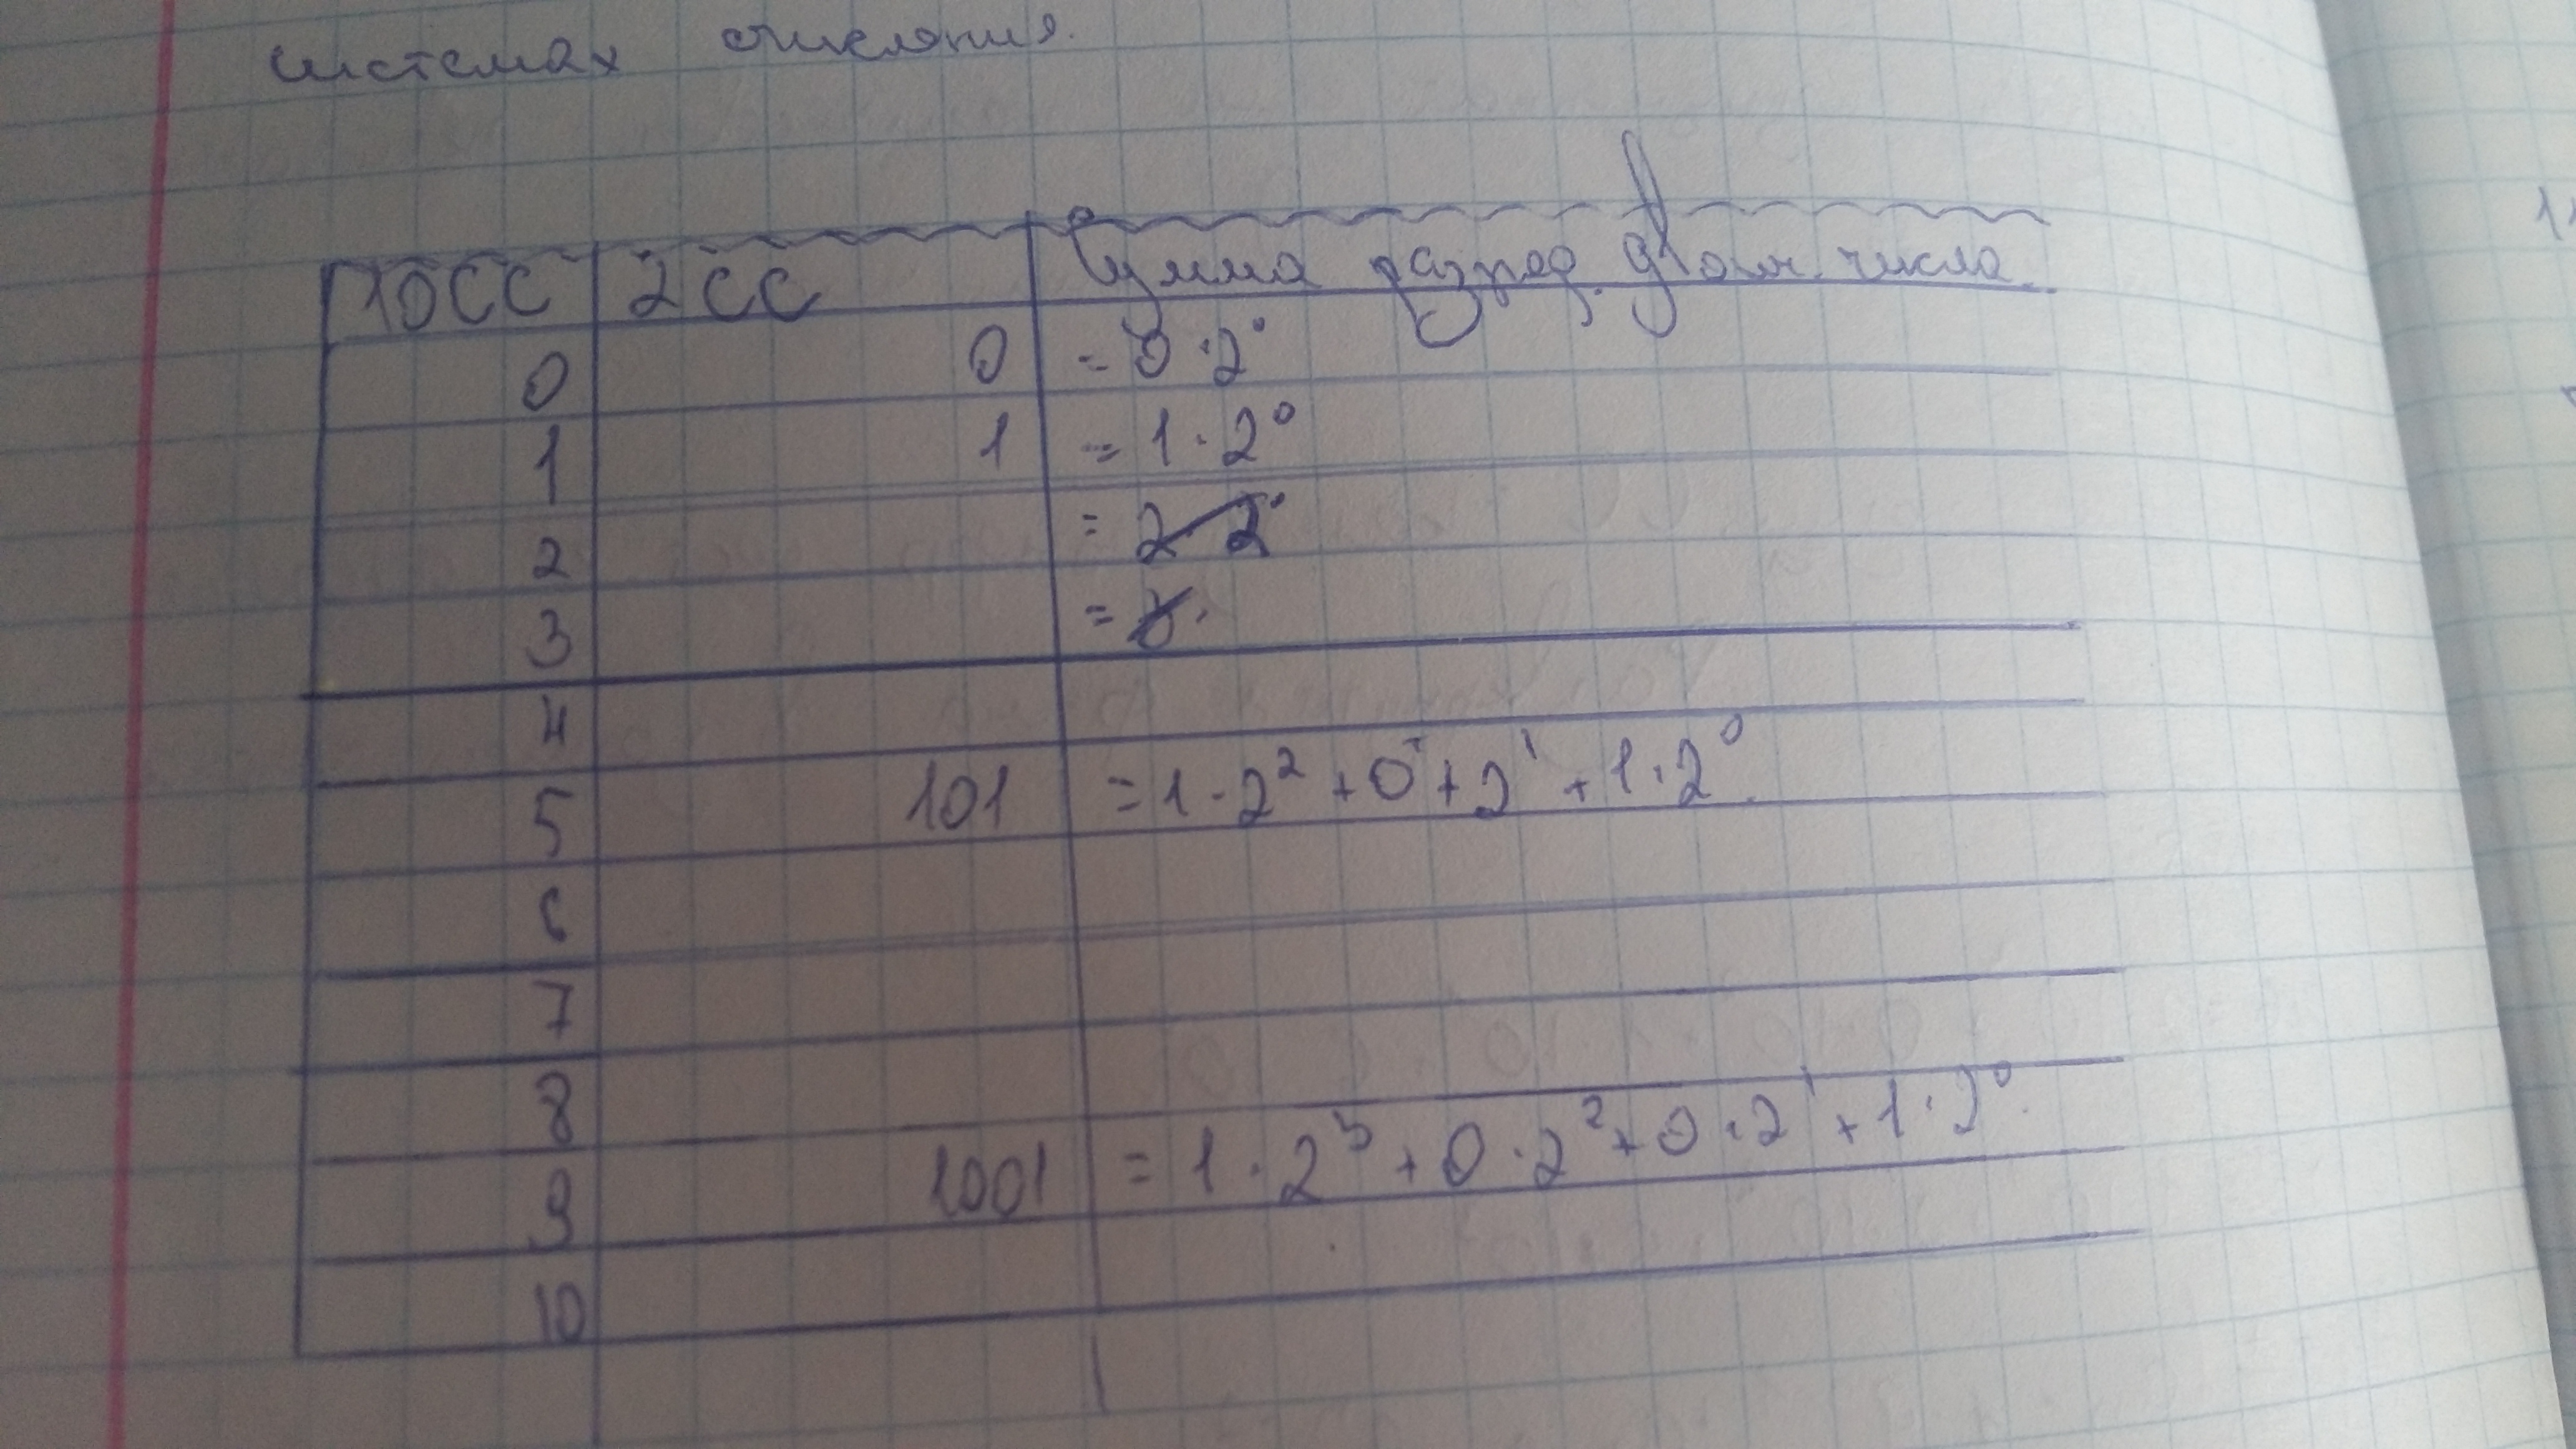 системах счисления.
10СС 2СС Сумма разряд. двоич. числа.
0 0 = 0·2⁰
1 1 = 1·2⁰
2 = 2·2⁰
3 =
4
5 101 = 1·2² + 0 + 2¹ + 1·2⁰.
6
7
8
9 1001 = 1·2³ + 0·2² + 0·2¹ + 1·2⁰.
10